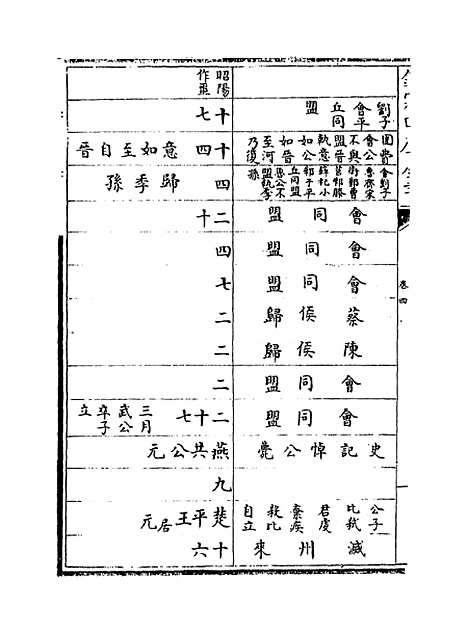 卷四
劉子會平丘同盟
圍費
會公不與盟晉執意如公如晉至河乃復
會劉子魯齊宋衛鄭曹莒邾滕薛杞小邾于平丘同盟魯公不盟執季孫
會同盟
會同盟
會同盟
蔡侯歸
陳侯歸
會同盟
會同盟
史記悼公薨
公子比弒君虔棄疾殺比自立
滅州來
昭陽作噩
十七
十四 意如至自晉
四 歸季孫
二十
四
七
二
二
二
二十七 三月武公卒子立
燕共公元
九
楚平王居元
十六